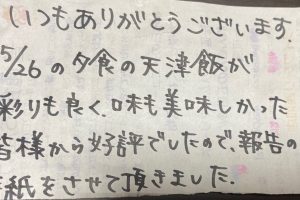 いつもありがとうございます.
5/26の夕食の天津飯が
彩りも良く、味も美味しかった
皆様から好評でしたので、報告の
紙をさせて頂きました.